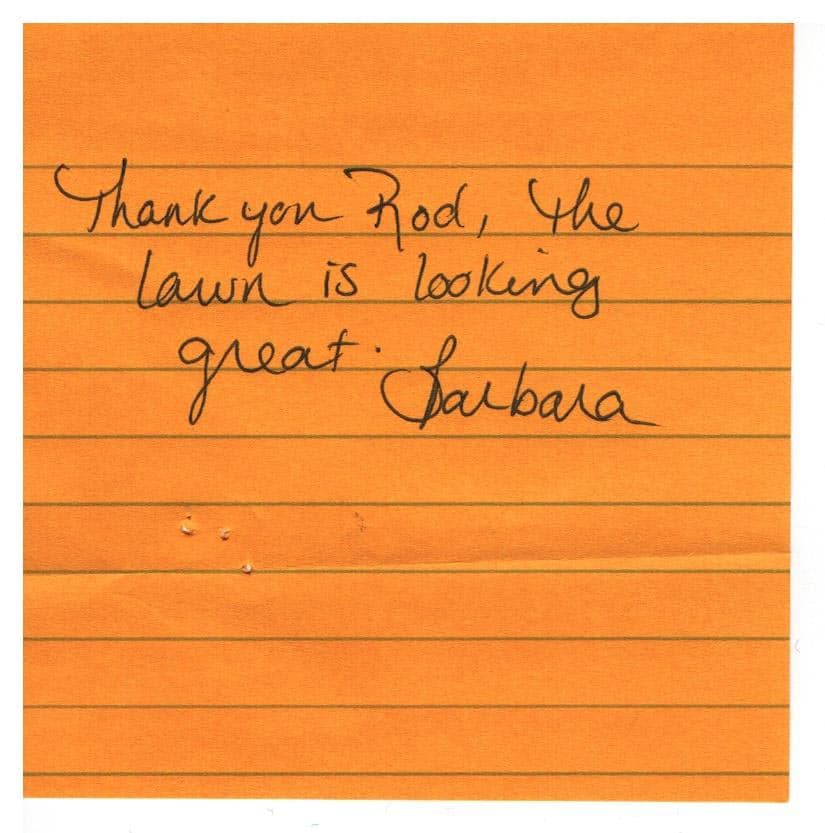 Thank you Rod, the
lawn is looking
great. Barbara